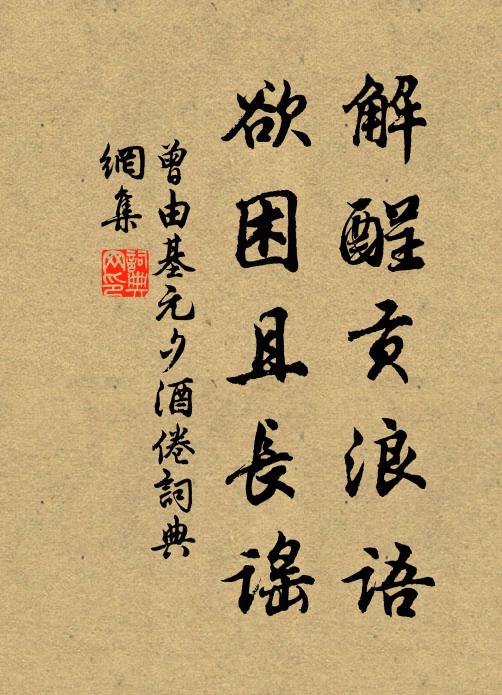 解酲贡浪语
欲困且長謠
曾由基元夕酒倦詞典
網集
詞典
网印